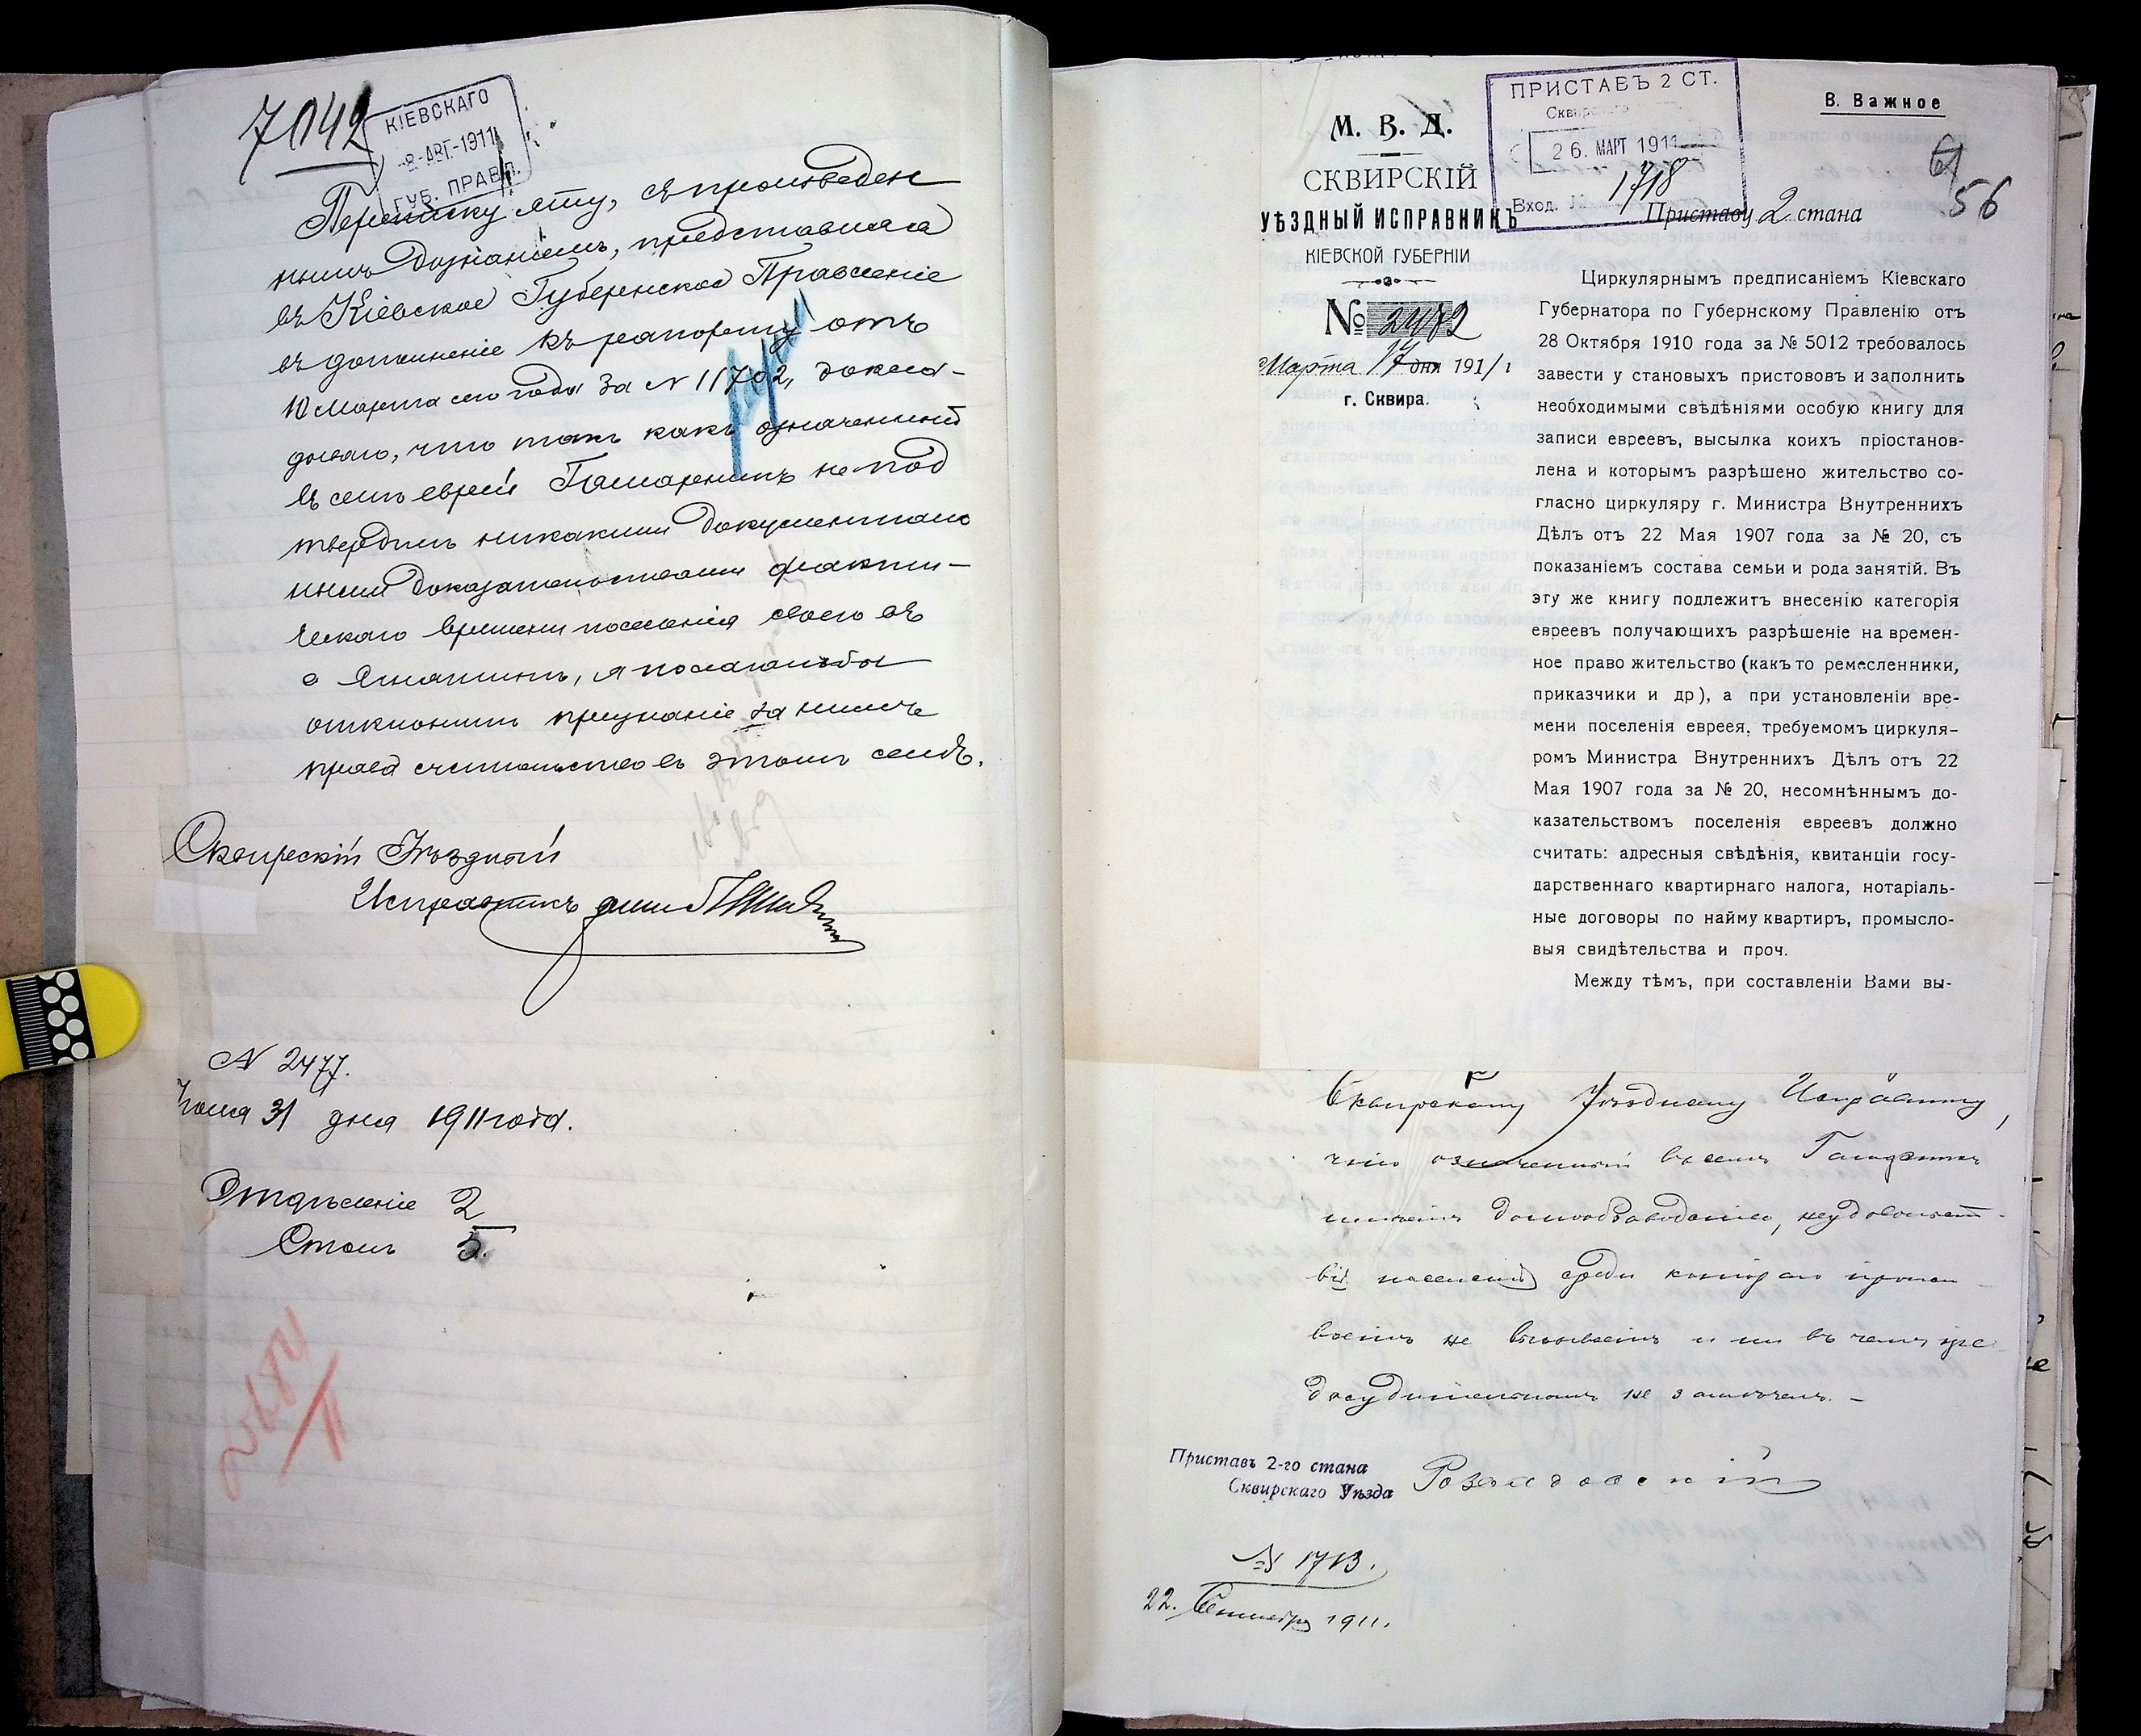 7042
КІЕВСКАГО
8-АВГ.-1911
ГУБ. ПРАВЛ.
Переписку эту, съ произведен
нымъ дознаніемъ, представляя
въ Кіевское Губернское Правленіе
въ дополненіе къ рапорту отъ
10 Марта сего года за N 11702, докла-
дываю, что такъ какъ означенный
въ семъ еврей не под
твердилъ никакими документаль
ными доказательствами факти-
ческаго времени поселенія своего въ
с , я полагалъ бы
отклонить признаніе за нимъ
права жительства въ этомъ селѣ.
Сквирскій Уѣздный
Исправникъ
N 2477.
31 дня 1911 года.
Отдѣленіе 2
Столъ 5.
М. В. Д.
СКВИРСКІЙ
УѢЗДНЫЙ ИСПРАВНИКЪ
КІЕВСКОЙ ГУБЕРНІИ
№ 2472
Марта 17 дня 1911 г
г. Сквира.
ПРИСТАВЪ 2 СТ.
Сквирскаго
26. МАРТ 1911
Вход. № 1718
В. Важное
61
56
Приставу 2 стана
Циркулярнымъ предписаніемъ Кіевскаго
Губернатора по Губернскому Правленію отъ
28 Октября 1910 года за № 5012 требовалось
завести у становыхъ приставовъ и заполнить
необходимыми свѣдѣніями особую книгу для
записи евреевъ, высылка коихъ пріостанов-
лена и которымъ разрѣшено жительство со-
гласно циркуляру г. Министра Внутреннихъ
Дѣлъ отъ 22 Мая 1907 года за № 20, съ
показаніемъ состава семьи и рода занятій. Въ
эту же книгу подлежитъ внесенію категорія
евреевъ получающихъ разрѣшеніе на времен-
ное право жительство (какъ то ремесленники,
приказчики и др), а при установленіи вре-
мени поселенія евреея, требуемомъ циркуля-
ромъ Министра Внутреннихъ Дѣлъ отъ 22
Мая 1907 года за № 20, несомнѣннымъ до-
казательствомъ поселенія евреевъ должно
считать: адресныя свѣдѣнія, квитанціи госу-
дарственнаго квартирнаго налога, нотаріаль-
ные договоры по найму квартиръ, промысло-
выя свидѣтельства и проч.
Между тѣмъ, при составленіи Вами вы-
Сквирскому Уѣздному Исправнику,
что означенный въ семъ
домообзаводство, неудовольст-
вія населенія среди котораго прожи
ваетъ не вызываетъ и ни въ чемъ пре
досудительномъ не замѣченъ. -
Приставъ 2-го стана
Сквирскаго Уѣзда
№ 1713.
22. Сентября 1911.